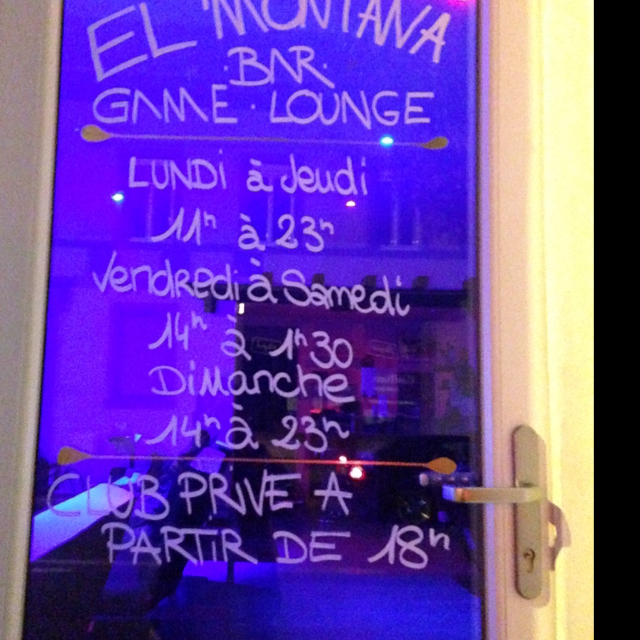 EL MONTANA
·BAR·
GAME · LOUNGE
LUNDi à Jeudi
11h à 23h
Vendredi à Samedi
14h à 1h30
DiMANche
14h à 23h
CLUB PRIVE A
PARTIR DE 18h